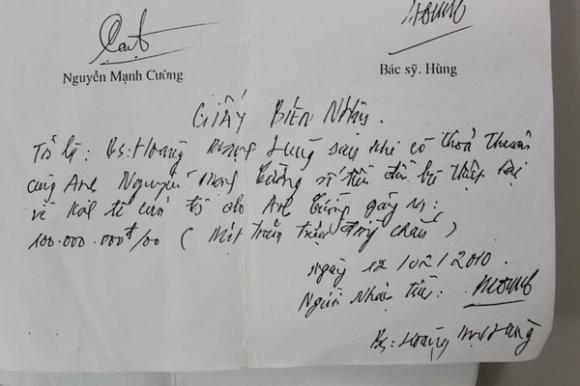 Nguyễn Mạnh Cường
Bác sỹ. Hùng
GIẤY BIÊN NHẬN.
Tôi là: Bs: Hoàng Mạnh Hùng sau khi có thỏa thuận
cùng Anh Nguyễn Mạnh Cường số tiền đền bù thiệt hại
về kinh tế của tôi do Anh Cường gây ra:
100.000.000đ/00 (Một trăm triệu đồng chẵn)
Ngày 12/02/2010.
Người nhận tiền:
Bs: Hoàng Mạnh Hùng